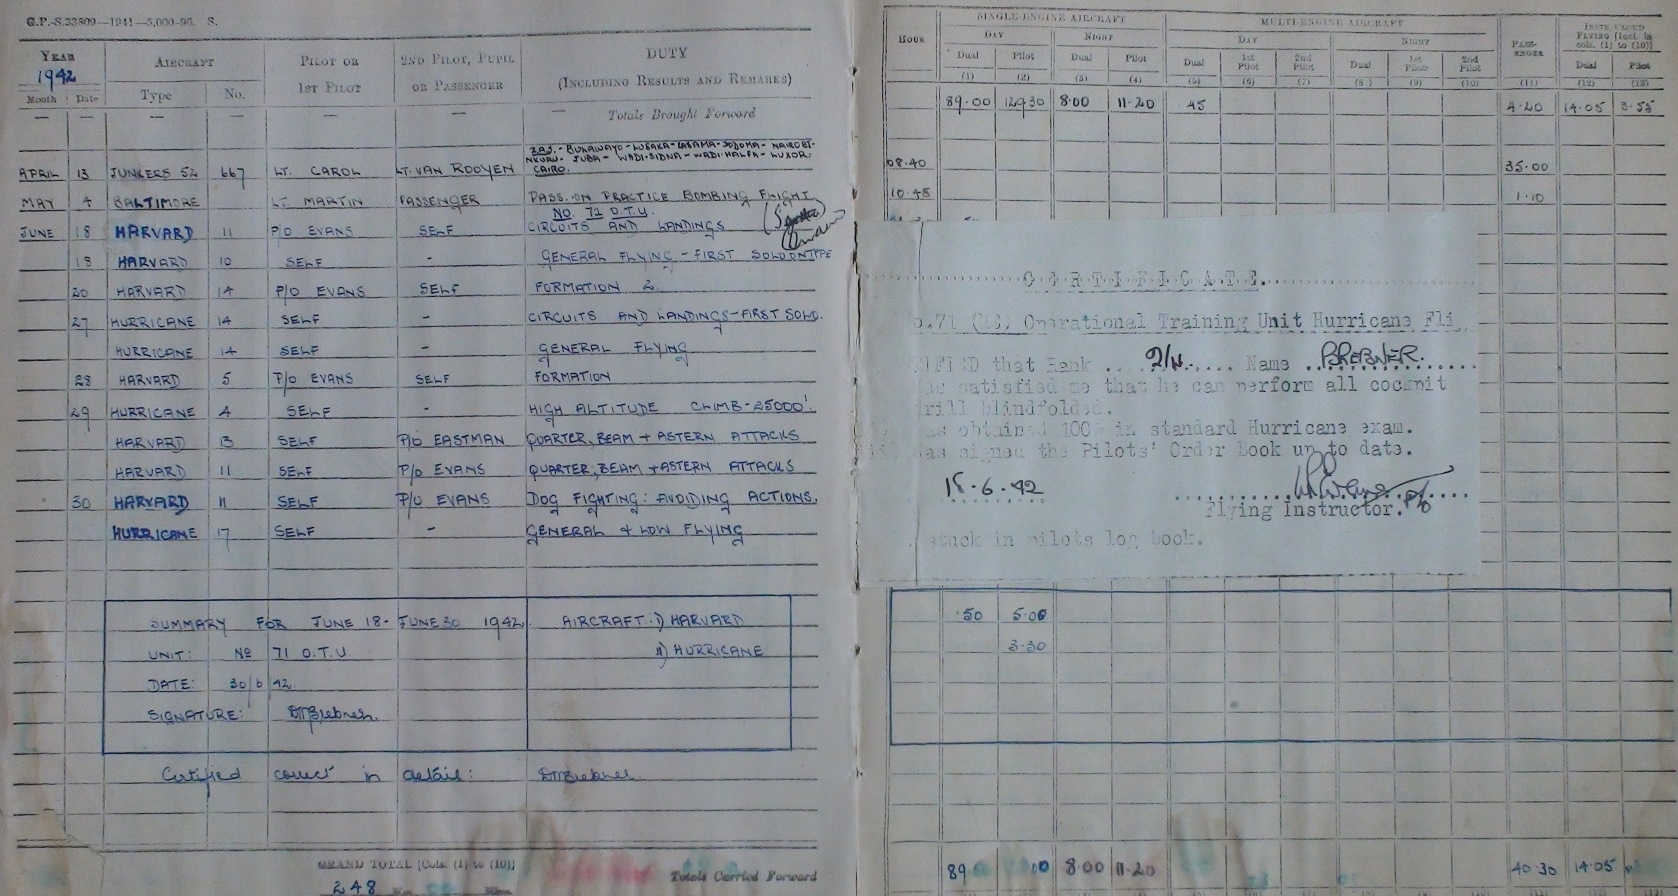 G.P.-S.33809—1941—5,000-96. S.
YEAR AIRCRAFT PILOT OR 2ND PILOT, PUPIL DUTY
1942 1ST PILOT OR PASSENGER (INCLUDING RESULTS AND REMARKS)
Month Date Type No.
— — — — — Totals Brought Forward
BULAWAYO - LUSAKA - KASAMA - DODOMA - NAIROBI -
JUBA - WADI-SIDNA - WADI-HALFA - LUXOR -
APRIL 13 JUNKERS 52 667 LT. CAROL LT. VAN ROOYEN CAIRO.
MAY 4 BALTIMORE LT MARTIN PASSENGER PASS. ON PRACTICE BOMBING FLIGHT
NO. 71 O.T.U.
JUNE 18 HARVARD 11 P/O EVANS SELF CIRCUITS AND LANDINGS
18 HARVARD 10 SELF - GENERAL FLYING - FIRST SOLO ON TYPE
20 HARVARD 14 P/O EVANS SELF FORMATION 2.
27 HURRICANE 14 SELF - CIRCUITS AND LANDINGS - FIRST SOLO.
HURRICANE 14 SELF - GENERAL FLYING
28 HARVARD 5 P/O EVANS SELF FORMATION
29 HURRICANE 4 SELF - HIGH ALTITUDE CLIMB - 25000'.
HARVARD 13 SELF P/O EASTMAN QUARTER, BEAM + ASTERN ATTACKS
HARVARD 11 SELF P/O EVANS QUARTER, BEAM + ASTERN ATTACKS
30 HARVARD 11 SELF P/O EVANS DOG FIGHTING: AVOIDING ACTIONS.
HURRICANE 17 SELF - GENERAL + LOW FLYING
SUMMARY FOR JUNE 18 - JUNE 30 1942. AIRCRAFT: i) HARVARD
UNIT: No 71 O.T.U. ii) HURRICANE
DATE: 30/6/42.
SIGNATURE: DTBrebner.
Certified correct in detail: DTBrebner.
GRAND TOTAL [Cols. (1) to (10)]
248
Totals Carried Forward
SINGLE-ENGINE AIRCRAFT MULTI-ENGINE AIRCRAFT
HOUR DAY NIGHT DAY NIGHT PASS-ENGER INSTR/CLOUD FLYING [Incl. in cols. (1) to (10)]
Dual Pilot Dual Pilot Dual 1st Pilot 2nd Pilot Dual 1st Pilot 2nd Pilot Dual Pilot
(1) (2) (3) (4) (5) (6) (7) (8) (9) (10) (11) (12) (13)
89.00 129.30 8.00 11.20 .45 4.20 14.05 3.55
08.40 35.00
10.45 1.10
C.E.R.T.I.F.I.C.A.T.E.
o.71 (ME) Operational Training Unit Hurricane Fli
TIFIED that Rank 2/Lt. Name BREBNER.
as satisfied me that he can perform all cockpit
drill blindfolded.
as obtained 100% in standard Hurricane exam.
has signed the Pilots' Order Book up to date.
18.6.42
Flying Instructor. P/O
stuck in pilots log book.
.50 5.00
3.30
89 00 8.00 11.20 40.30 14.05